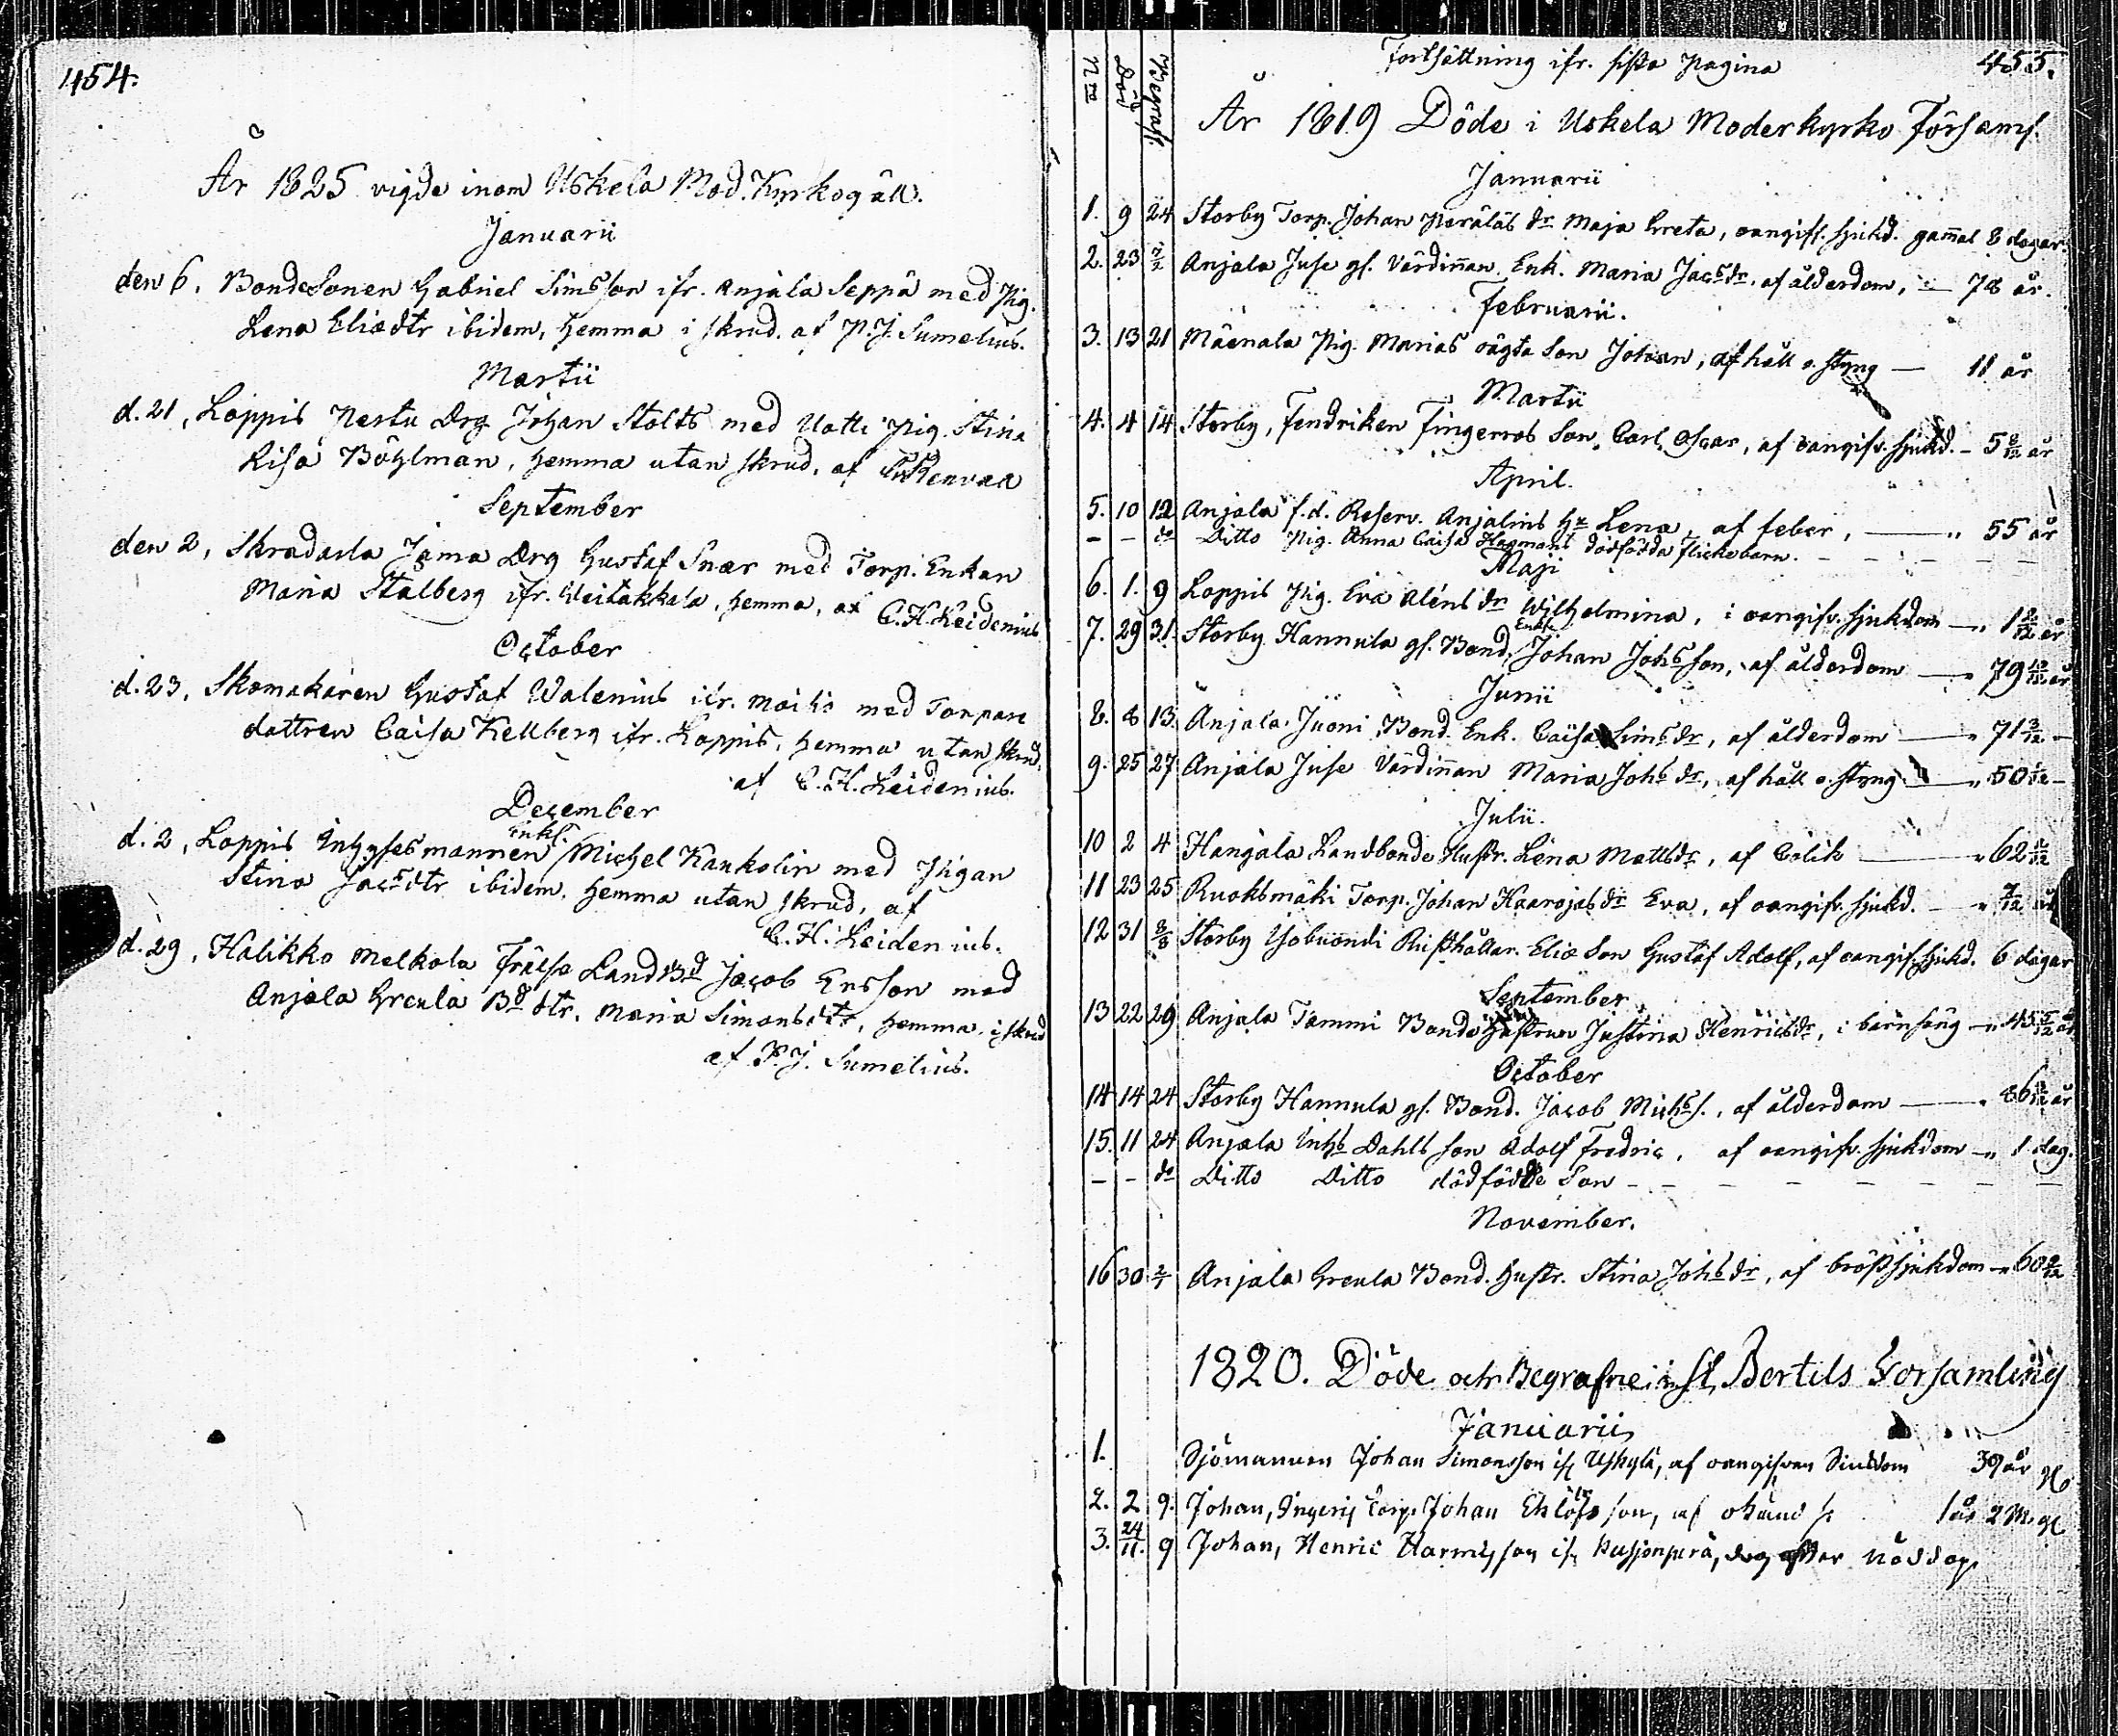 454.
År 1825 vigde inom Uskela Mod. Kyrkogäll.
Januarii
den 6, BondeSonen Gabriel Sims Son ifr. Anjala Seppä med Pig.
Lena Eliædtr ibidem, hemma i skrud. af P. J. Sumelius.
Martii
d. 21, Loppis Pertu Drg Johan Stolts med Uotti Pig. Stina
Lisa Böhlman, hemma utan skrud, af Renvall
September
den 2, Skradarla Jama Drg Gustaf Snar med Torp. Enkan
Maria Stalberg ifr. Veitakkala, hemma, af C. H. Leidenius
October
d. 23, Skomakaren Gustaf Walenius ifr. Moihis med Torpare
dottren Caisa Kellberg ifr. Loppis, hemma utan skrud,
af C. H. Leidenius.
December
Enkl.
d. 2, Loppis Inhysesmannen Michel Kankolin med Pigan
Stina Jacsdtr ibidem, hemma utan skrud, af
C. H. Leidenius.
d. 29, Halikko Melkola Frälse LandBd Jacob Ersson med
Anjala Greula Bd dtr. Maria Simonsdtr, hemma, i skrud
af P. J. Sumelius.
455.
Fortsättning ifr. sista pagina
Nro Död Begraf.
År 1819 Döde i Uskela Moderkyrko Församl.
Januarii
1. 9 24 Storby Torp. Johan Peräläs dr Maja Greta, oangif. sjukd. gam̄al 8 dagar.
2. 23 7/2 Anjala Juse gl. Värdin̄an Enk. Maria Jacs dr, af ålderdom, — 78 år.
Februarii.
3. 13 21 Mäenala Pig. Marias oägta Son Johan, af håll o. styng — 11 år
Martii
4. 4 14 Storby, Fendriken Fingerroos Son, Carl Oscar, af oangifv. sjukd. - 5 8/12 år
April.
5. 10 12 Anjala f.d. Reserv. Anjalins Hu Lena, af feber, — " 55 år
- - do Ditto Pig. Anna Caisa Hagmans dödfödda flickobarn. - - - - -
Maji
6. 1. 9 Loppis Pig. Eva Aléns dr Wilhelmina, i oangifv. sjukdom — " 1 8/12 år
Enkl.
7. 29 31. Storby Hannula gl. Bond. Johan Johs Son, af ålderdom — " 79 10/12 år
Junii
8. 8 13. Anjala Juoni Bond. Enk. Caisa Sims dr, af ålderdom — " 71 3/12 -
9. 25 27 Anjala Juse Värdin̄an Maria Johs dr, af håll o. styng — " 50 1/12 -
Julii.
10 2 4 Hangala Landbonde Hustr. Lena Mattsdr, af Colik — " 62 1/12
11 23 25 Ruoksmäki Torp. Johan Haarojas dr Eva, af oangifv. sjukd. — " 7/12 år
12 31 8/8 Storby Yobuondi Rusthållar. Eliæ Son Gustaf Adolf, af oangif. sjukd. 6 dagar
September
13 22 29 Anjala Tommi Bonde Hustrun Justina Henricsdr, i barnsäng — " 45 5/12 år
October
14 14 24 Storby Hannula gl. Bond. Jacob Michs S., af ålderdom — " 86 1/12 år
15. 11 24 Anjala Inhs Dahls Son Adolf Fredric, af oangifv. sjukdom — " 1 dag.
- - do Ditto Ditto dödfödde Son - - - - - - -
November.
16 30 2/1 Anjala Greula Bond. Hustr. Stina Johs dr, af bröstsjukdom — " 60 9/12
1820. Döde och Begrafne i St Bertils Forsamling
Januarii
1. Sjömannen Johan Simonsson if Uskyla, af oangifven Siukdom 39 år
2. 2 9. Johan, Ingeris Torp. Johan Eklöfs son, af okänd s. 1 år 2 M.
3. 24/11. 9 Johan, Henric son if dog efter nöddop